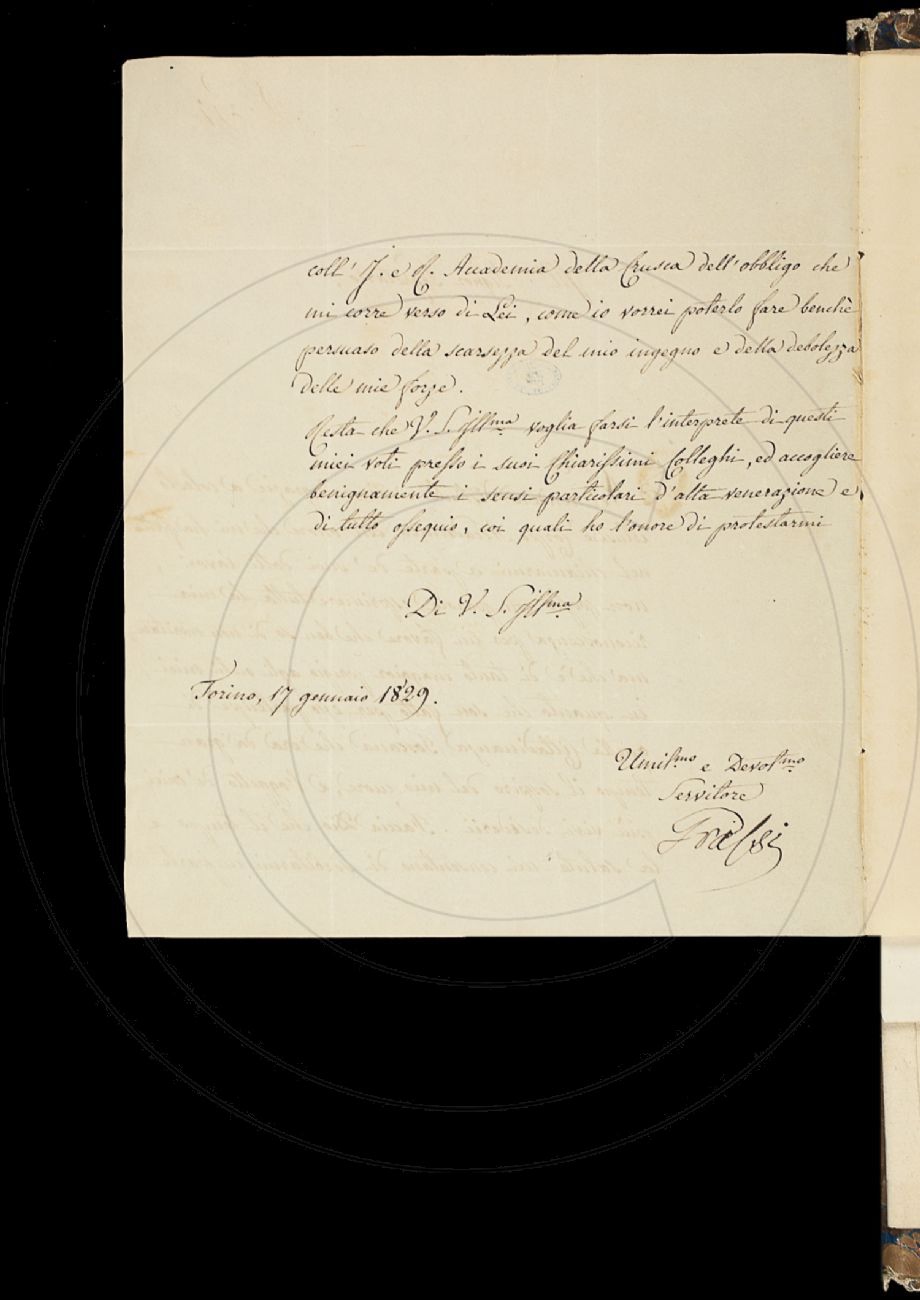 coll' I. e R. Accademia della Crusca dell'obbligo che
mi corre verso di Lei, come io vorrei poterlo fare benchè
persuaso della scarsezza del mio ingegno e della debolezza
delle mie forze.
Resta che V. S. Illma voglia farsi l'interprete di questi
miei voti presso i suoi Chiarissimi Colleghi, ed accogliere
benignamente i sensi particolari d'alta venerazione e
di tutto ossequio, coi quali ho l'onore di protestarmi
Di V. S. Illma
Torino, 17 gennaio 1829.
Umilmo e Devotmo
Servitore
Grassi